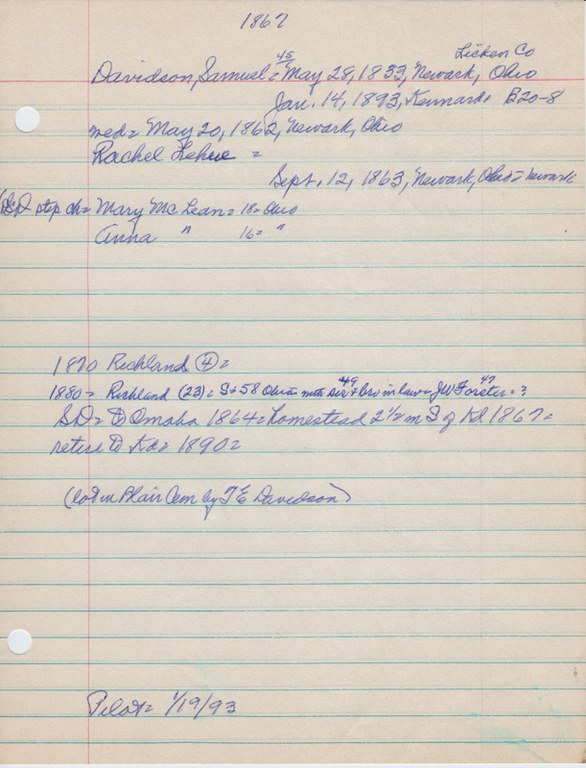 1867
Licken Co
45
Davidson, Samuel = May 28, 1833, Newark, Ohio
Jan. 14, 1893, Kennard = B20-8
med = May 20, 1862, Newark, Ohio
Rachel Lehue =
Sept. 12, 1863, Newark, Ohio = Newark
step ch = Mary McLean = 18 = Ohio
Anna " 16 = "
1870 Richland (4) =
49 47
1880 = Richland (23) = S = 58 Ohio = with sis & bro in law = JW Forster = ?
SD = to Omaha 1864 = homestead 2½ m S of Kd 1867 =
retire to Kd = 1890 =
(lot in Blair Cem by T E Davidson)
Pilot = 1/19/93